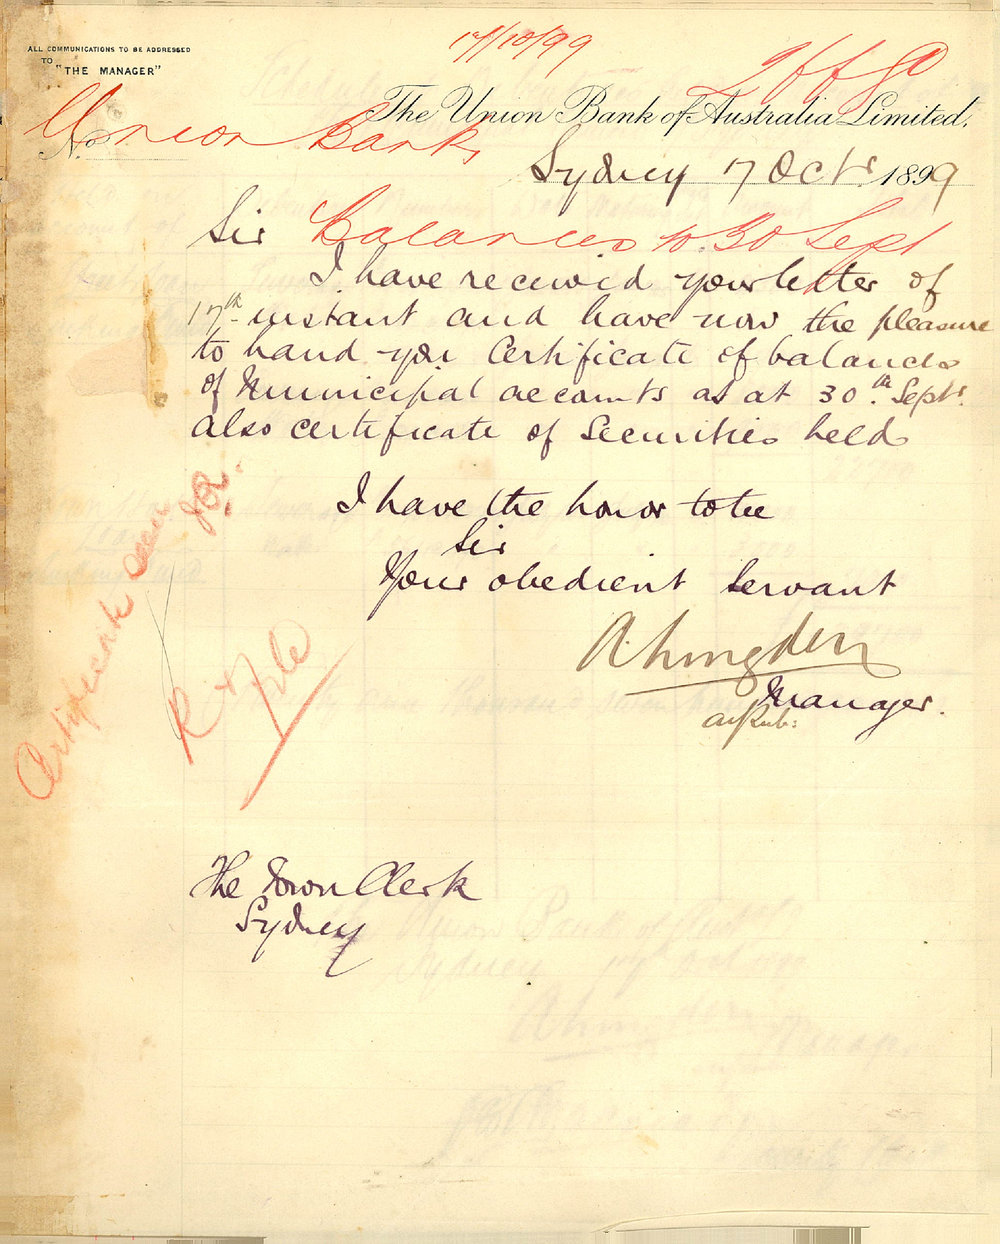 ALL COMMUNICATIONS TO BE ADDRESSED
TO
"THE MANAGER"
17/10/99
The Union Bank of Australia Limited.
No.
Union Bank
Sydney 17 Oct. 1899
Sir
Balances to 30 Sept
I have received your letter of
17th instant and have now the pleasure
to hand you Certificate of balances
of Municipal accounts as at 30th. Sept.
also certificate of Securities held
I have the honor to be
Sir
Your obedient servant
Manager.
Certificate
for.
R & File
The Town Clerk
Sydney
Union Bank of
Sydney 17th Oct 1899